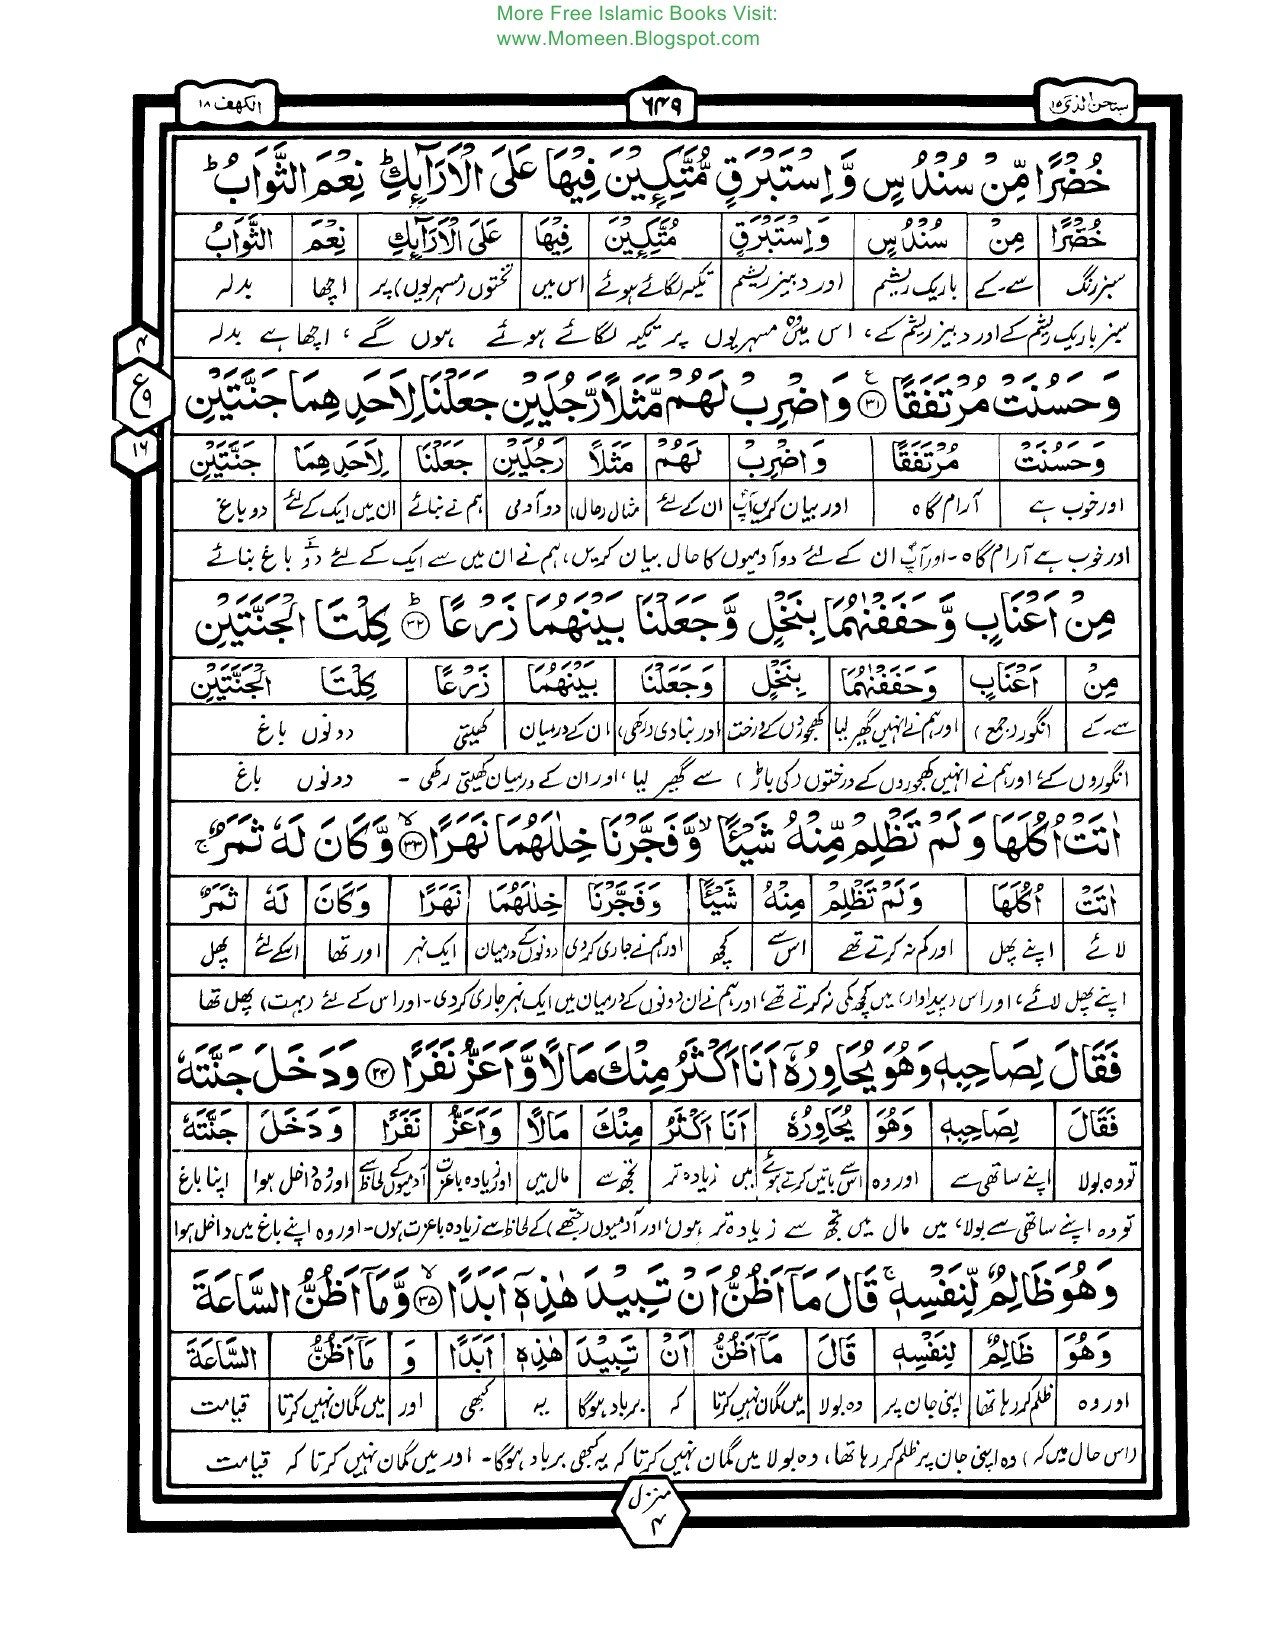 More Free Islamic Books Visit:
www.Momeen.Blogspot.com
سبحن الذی ۱۵
۶۴۹
الکهف ۱۸
خُضْرًا مِّنْ سُنْدُسٍ وَّاِسْتَبْرَقٍ مُّتَّكِـِٕيْنَ فِيْهَا عَلَى الْاَرَآىِٕكِ ؕ نِعْمَ الثَّوَابُ ؕ
خُضْرًا مِنْ سُنْدُسٍ وَاِسْتَبْرَقٍ مُتَّكِـِٕيْنَ فِيْهَا عَلَى الْاَرَآىِٕكِ نِعْمَ الثَّوَابُ
سبز رنگ سے۔کے باریک ریشم اور دبیز ریشم تکیہ لگائے ہوئے اس میں تختوں (مسہریوں) پر اچھا بدلہ
سبز باریک ریشم کے اور دبیز ریشم کے، اس میں وہ مسہریوں پر تکیہ لگائے ہوئے ہوں گے، اچھا ہے بدلہ
۴
ع
۹
۱۶
وَحَسُنَتْ مُرْتَفَقًا ۳۱ ع وَاضْرِبْ لَهُمْ مَّثَلًا رَّجُلَيْنِ جَعَلْنَا لِاَحَدِهِمَا جَنَّتَيْنِ
وَحَسُنَتْ مُرْتَفَقًا وَاضْرِبْ لَهُمْ مَثَلًا رَجُلَيْنِ جَعَلْنَا لِاَحَدِهِمَا جَنَّتَيْنِ
اور خوب ہے آرام گاہ اور بیان کریں آپ ان کے لئے مثال (حال) دو آدمی ہم نے بنائے ان میں ایک کے لئے دو باغ
اور خوب ہے آرام گاہ۔ اور آپ ان کے لئے دو آدمیوں کا حال بیان کریں، ہم نے ان میں سے ایک کے لئے دو باغ بنائے
مِنْ اَعْنَابٍ وَّحَفَفْنٰهُمَا بِنَخْلٍ وَّجَعَلْنَا بَيْنَهُمَا زَرْعًا ۳۲ ط كِلْتَا الْجَنَّتَيْنِ
مِنْ اَعْنَابٍ وَحَفَفْنٰهُمَا بِنَخْلٍ وَجَعَلْنَا بَيْنَهُمَا زَرْعًا كِلْتَا الْجَنَّتَيْنِ
سے۔کے انگور (جمع) اور ہم نے انہیں گھیر لیا کھجوروں کے درخت اور بنا دی (رکھی) ان کے درمیان کھیتی دونوں باغ
انگوروں کے، اور ہم نے انہیں کھجوروں کے درختوں (کی باڑ) سے گھیر لیا، اور ان کے درمیان کھیتی رکھی۔ دونوں باغ
اٰتَتْ اُكُلَهَا وَلَمْ تَظْلِمْ مِّنْهُ شَيْـًٔا ۙ وَّفَجَّرْنَا خِلٰلَهُمَا نَهَرًا ۳۳ لا وَّكَانَ لَهٗ ثَمَرٌ ۚ
اٰتَتْ اُكُلَهَا وَلَمْ تَظْلِمْ مِنْهُ شَيْـًٔا وَفَجَّرْنَا خِلٰلَهُمَا نَهَرًا وَكَانَ لَهٗ ثَمَرٌ
لائے اپنے پھل اور کم نہ کرتے تھے اس سے کچھ اور ہم نے جاری کر دی دونوں کے درمیان ایک نہر اور تھا اسکے لئے پھل
اپنے پھل لائے، اور اس (پیداوار) میں کچھ کمی نہ کرتے تھے، اور ہم نے ان دونوں کے درمیان میں ایک نہر جاری کر دی۔ اور اس کے لئے (بہت) پھل تھا
فَقَالَ لِصَاحِبِهٖ وَهُوَ يُحَاوِرُهٗٓ اَنَا اَكْثَرُ مِنْكَ مَالًا وَّاَعَزُّ نَفَرًا ۳۴ وَدَخَلَ جَنَّتَهٗ
فَقَالَ لِصَاحِبِهٖ وَهُوَ يُحَاوِرُهٗ اَنَا اَكْثَرُ مِنْكَ مَالًا وَاَعَزُّ نَفَرًا وَدَخَلَ جَنَّتَهٗ
تو وہ بولا اپنے ساتھی سے اور وہ اس سے باتیں کرتے ہوئے میں زیادہ تر تجھ سے مال میں اور زیادہ باعزت آدمیوں کے لحاظ سے اور وہ داخل ہوا اپنا باغ
تو وہ اپنے ساتھی سے بولا، میں مال میں تجھ سے زیادہ تر ہوں، اور آدمیوں (جتھے) کے لحاظ سے زیادہ باعزت ہوں۔ اور وہ اپنے باغ میں داخل ہوا
وَهُوَ ظَالِمٌ لِّنَفْسِهٖ ۚ قَالَ مَآ اَظُنُّ اَنْ تَبِيْدَ هٰذِهٖٓ اَبَدًا ۳۵ لا وَّمَآ اَظُنُّ السَّاعَةَ
وَهُوَ ظَالِمٌ لِنَفْسِهٖ قَالَ مَآ اَظُنُّ اَنْ تَبِيْدَ هٰذِهٖ اَبَدًا وَ مَآ اَظُنُّ السَّاعَةَ
اور وہ ظلم کر رہا تھا اپنی جان پر وہ بولا میں گمان نہیں کرتا کہ برباد ہوگا یہ کبھی اور میں گمان نہیں کرتا قیامت
(اس حال میں کہ) وہ اپنی جان پر ظلم کر رہا تھا، وہ بولا میں گمان نہیں کرتا کہ یہ کبھی برباد ہوگا۔ اور میں گمان نہیں کرتا کہ قیامت
منزل
۴